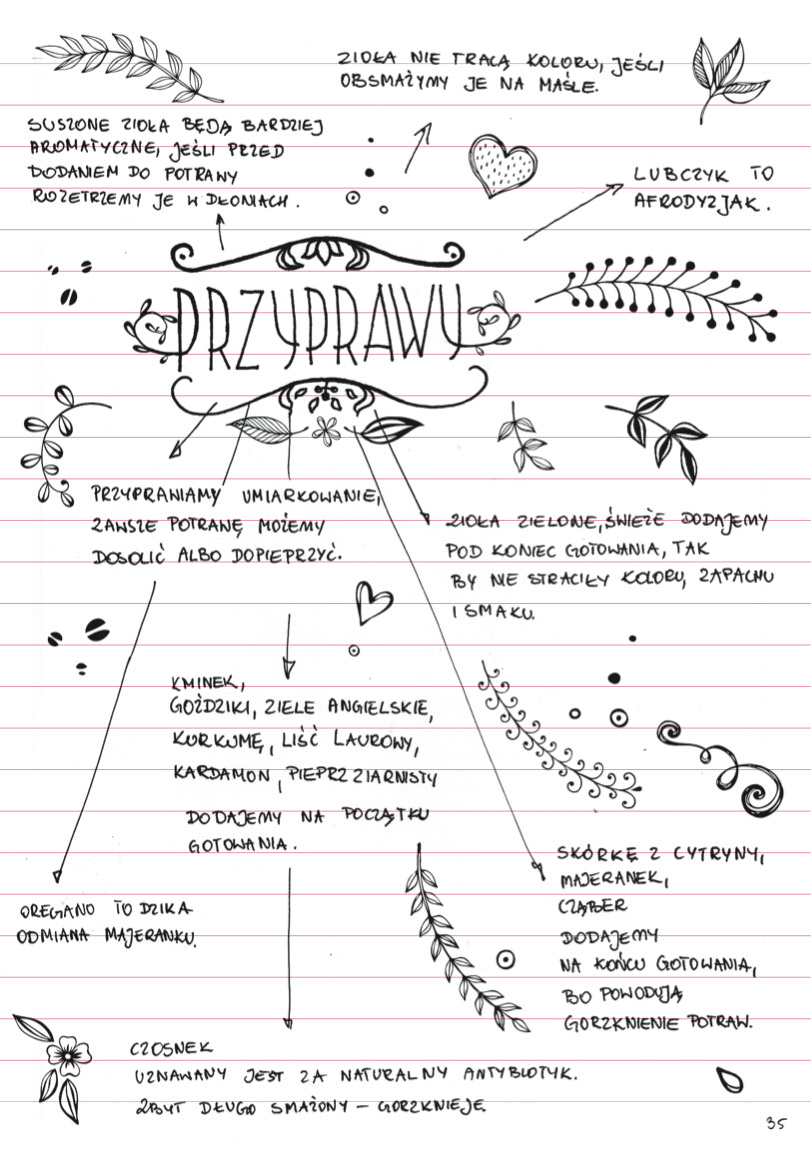 ZIOŁA NIE TRACĄ KOLORU, JEŚLI
OBSMAŻYMY JE NA MAŚLE.
SUSZONE ZIOŁA BĘDĄ BARDZIEJ
AROMATYCZNE, JEŚLI PRZED
DODANIEM DO POTRAWY
ROZETRZEMY JE W DŁONIACH.
LUBCZYK TO
AFRODYZJAK.
PRZYPRAWY
PRZYPRAWIAMY UMIARKOWANIE,
ZAWSZE POTRAWĘ MOŻEMY
DOSOLIĆ ALBO DOPIEPRZYĆ.
ZIOŁA ZIELONE, ŚWIEŻE DODAJEMY
POD KONIEC GOTOWANIA, TAK
BY NIE STRACIŁY KOLORU, ZAPACHU
I SMAKU.
KMINEK,
GOŹDZIKI, ZIELE ANGIELSKIE,
KURKUMĘ, LIŚĆ LAUROWY,
KARDAMON, PIEPRZ ZIARNISTY
DODAJEMY NA POCZĄTKU
GOTOWANIA.
SKÓRKĘ Z CYTRYNY,
MAJERANEK,
CZĄBER
DODAJEMY
NA KOŃCU GOTOWANIA,
BO POWODUJĄ
GORZKNIENIE POTRAW.
OREGANO TO DZIKA
ODMIANA MAJERANKU.
CZOSNEK
UZNAWANY JEST ZA NATURALNY ANTYBIOTYK.
ZBYT DŁUGO SMAŻONY – GORZKNIEJE.
35